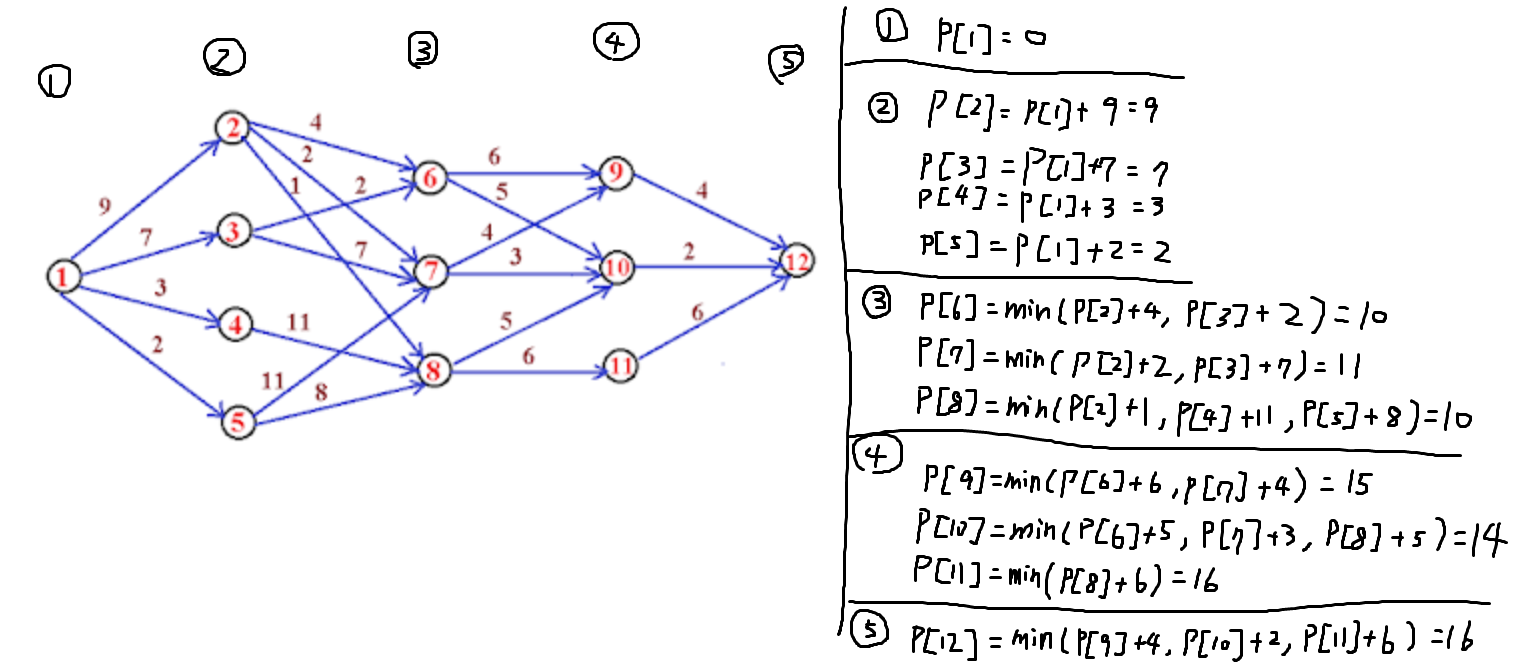 ① ② ③ ④ ⑤
1
2
3
4
5
6
7
8
9
10
11
12
9
7
3
2
4
2
1
2
7
11
11
8
6
5
4
3
5
6
4
2
6
① P[1]=0
② P[2]=P[1]+9=9
P[3]=P[1]+7=7
P[4]=P[1]+3=3
P[5]=P[1]+2=2
③ P[6]=min(P[2]+4, P[3]+2)=10
P[7]=min(P[2]+2, P[3]+7)=11
P[8]=min(P[2]+1, P[4]+11, P[5]+8)=10
④
P[9]=min(P[6]+6, P[7]+4)=15
P[10]=min(P[6]+5, P[7]+3, P[8]+5)=14
P[11]=min(P[8]+6)=16
⑤ P[12]=min(P[9]+4, P[10]+2, P[11]+6)=16